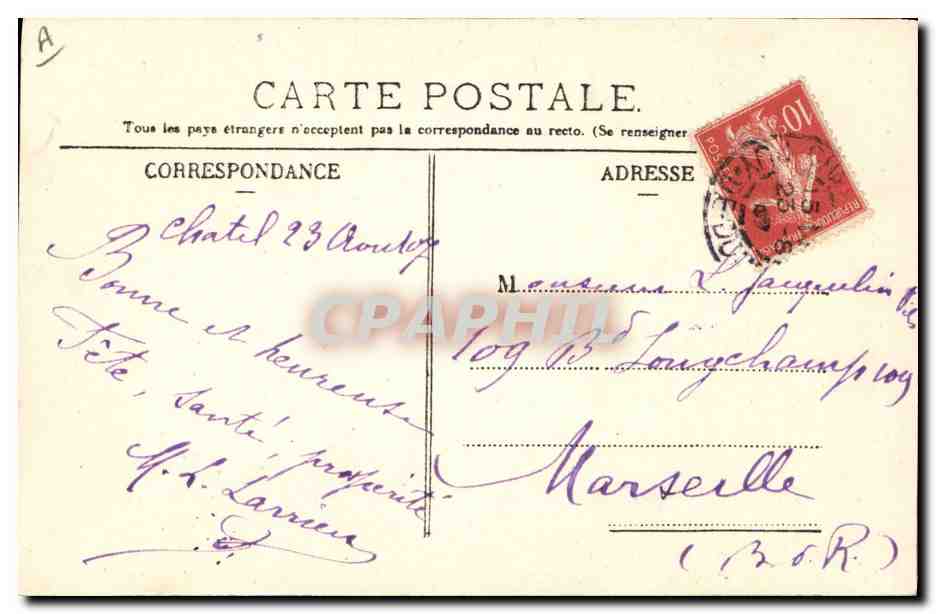 A
CARTE POSTALE.
Tous les pays étrangers n'acceptent pas la correspondance au recto. (Se renseigner
CORRESPONDANCE
ADRESSE
10
Chatel 23 Aout 07
Bonne et heureuse
Fête, santé, prospérité
M. L. Larrieu
Monsieur L. Jacquelin fils
109 Bd Longchamp 109
Marseille
(B. d. R.)
CPAPHIL